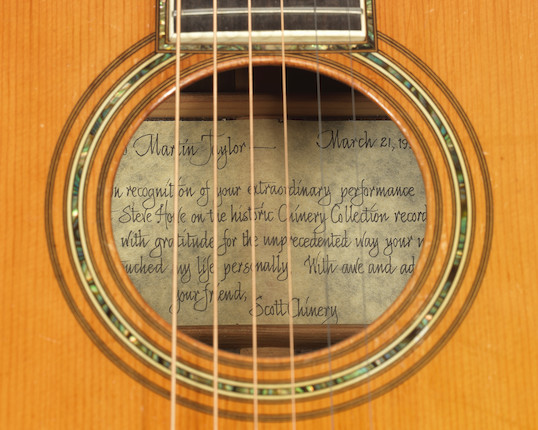 Martin Taylor — March 21, 19
n recognition of your extraordinary performance
Steve Howe on the historic Chinery Collection record
with gratitude for the unprecedented way your
uched my life personally With awe and ad
your friend,
Scott Chinery